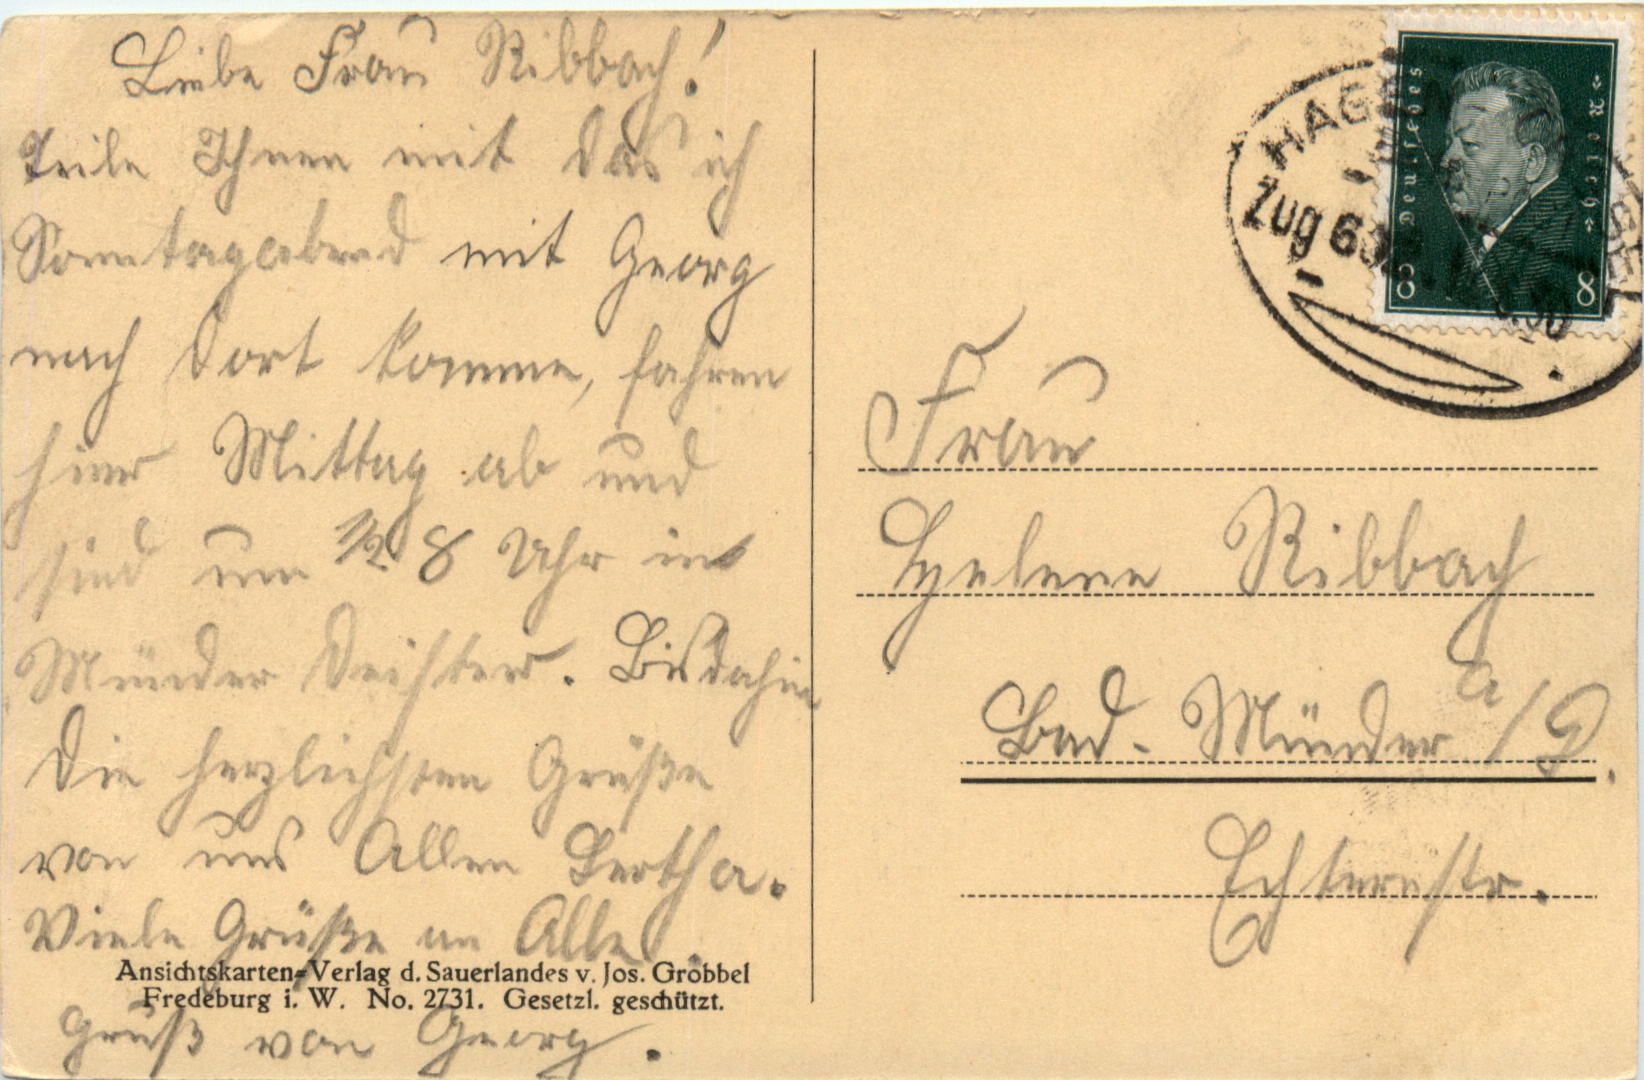 Liebe Frau Ribbach!
Teile Ihnen mit das ich
Sonntagabend mit Georg
nach dort komme, fahren
hier Mittag ab und
sind um 1/2 8 Uhr in
Münder Deister. Bisdahin
die herzlichsten Grüße
von uns Allen Bertha.
Viele Grüße an Alle.
Ansichtskarten-Verlag d. Sauerlandes v. Jos. Grobbel
Fredeburg i. W. No. 2731. Gesetzl. geschützt.
Gruß von Georg.
HAGEN
Zug 63
Deutsches Reich
8 8
Frau
Helene Ribbach
Bad-Münder a/D.
Echternstr.